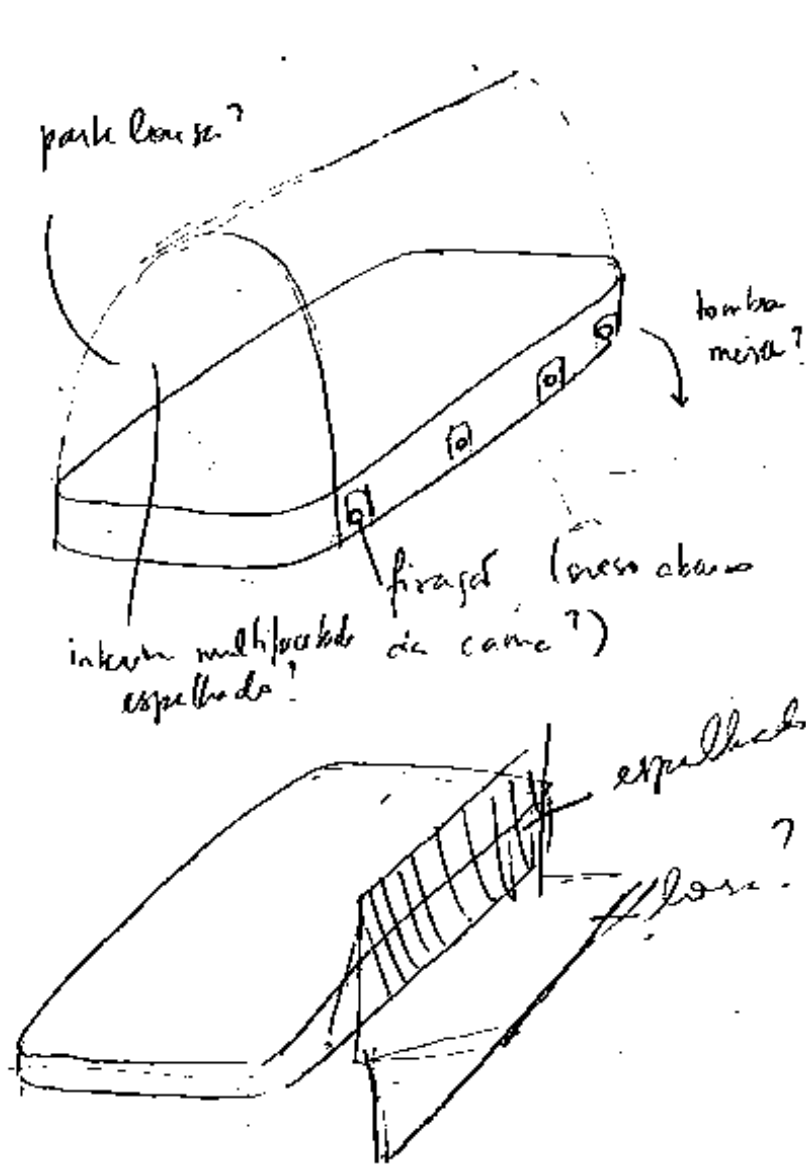 parte lousa?
tomba
mesa?
fixação (preso abaixo
da cama?)
interior multifacetado
espelhado?
espelhado
lousa?